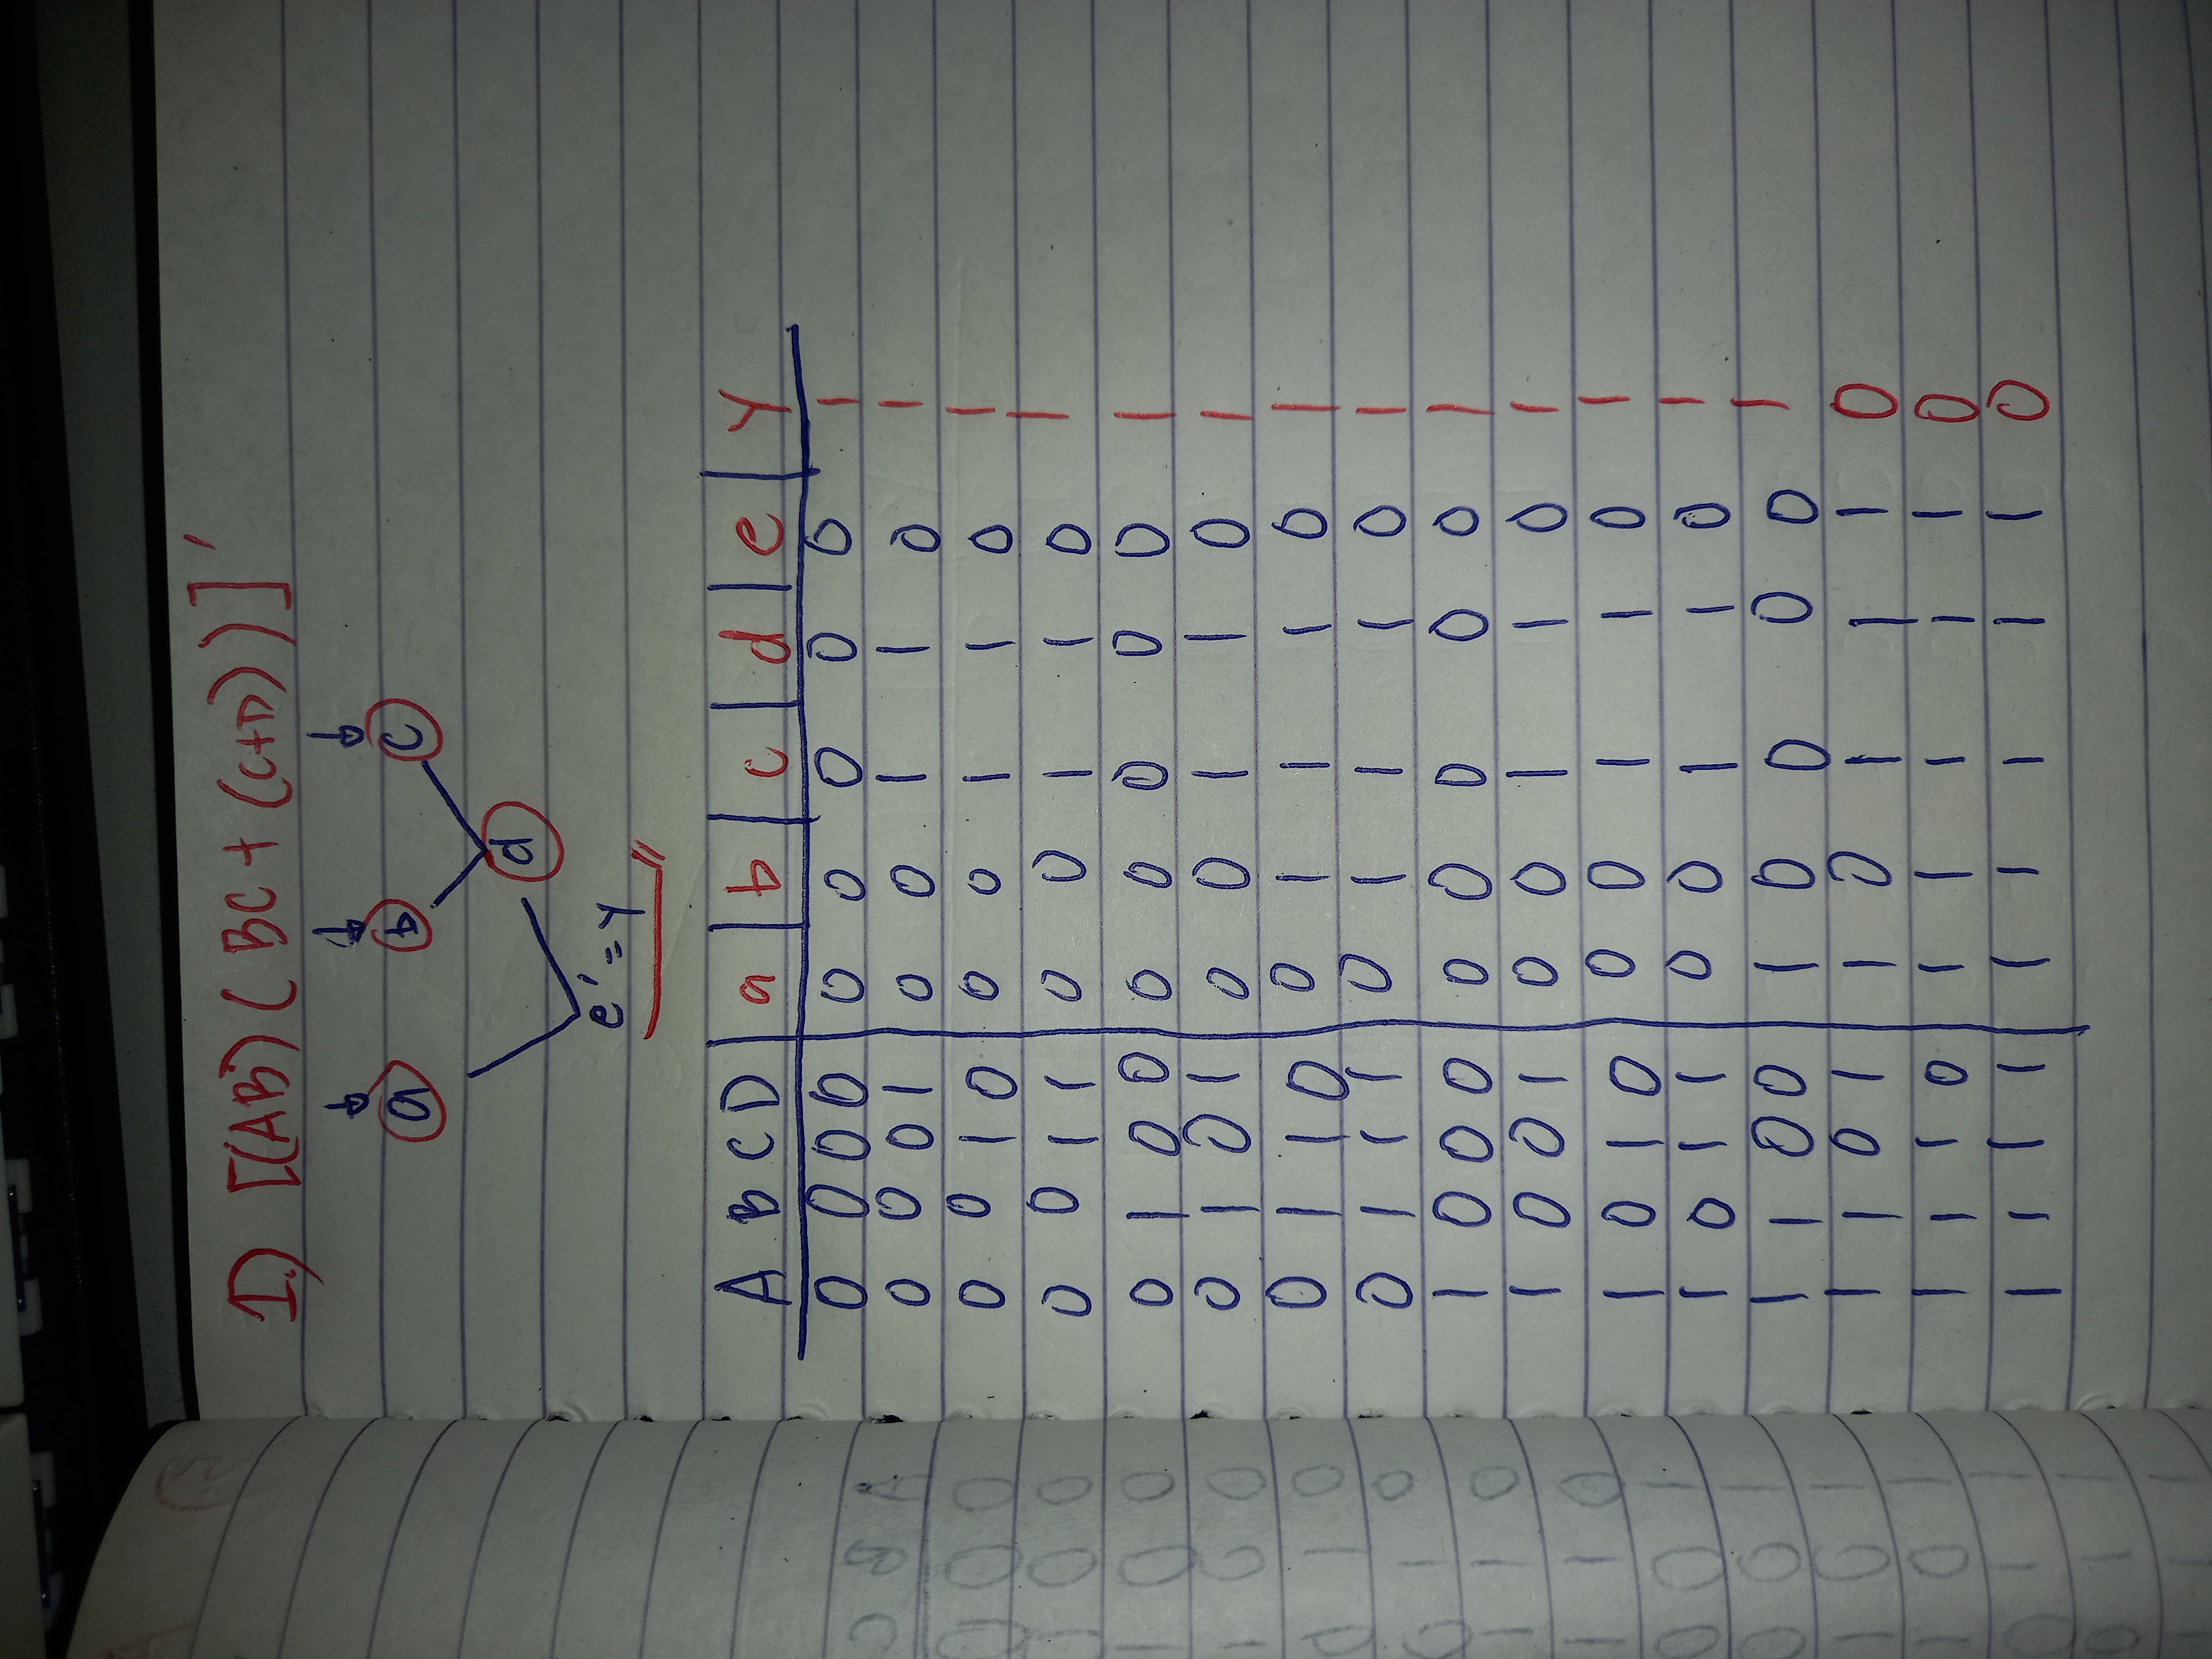 1.) [(AB)(BC+(C+D))]'
a b c
d
e'=y
A B C D a b c d e Y
0 0 0 0 0 0 0 0 0 1
0 0 0 1 0 0 1 1 0 1
0 0 1 0 0 0 1 1 0 1
0 0 1 1 0 0 1 1 0 1
0 1 0 0 0 0 0 0 0 1
0 1 0 1 0 0 1 1 0 1
0 1 1 0 0 1 1 1 0 1
0 1 1 1 0 1 1 1 0 1
1 0 0 0 0 0 0 0 0 1
1 0 0 1 0 0 1 1 0 1
1 0 1 0 0 0 1 1 0 1
1 0 1 1 0 0 1 1 0 1
1 1 0 0 1 0 0 0 0 1
1 1 0 1 1 0 1 1 1 0
1 1 1 0 1 1 1 1 1 0
1 1 1 1 1 1 1 1 1 0